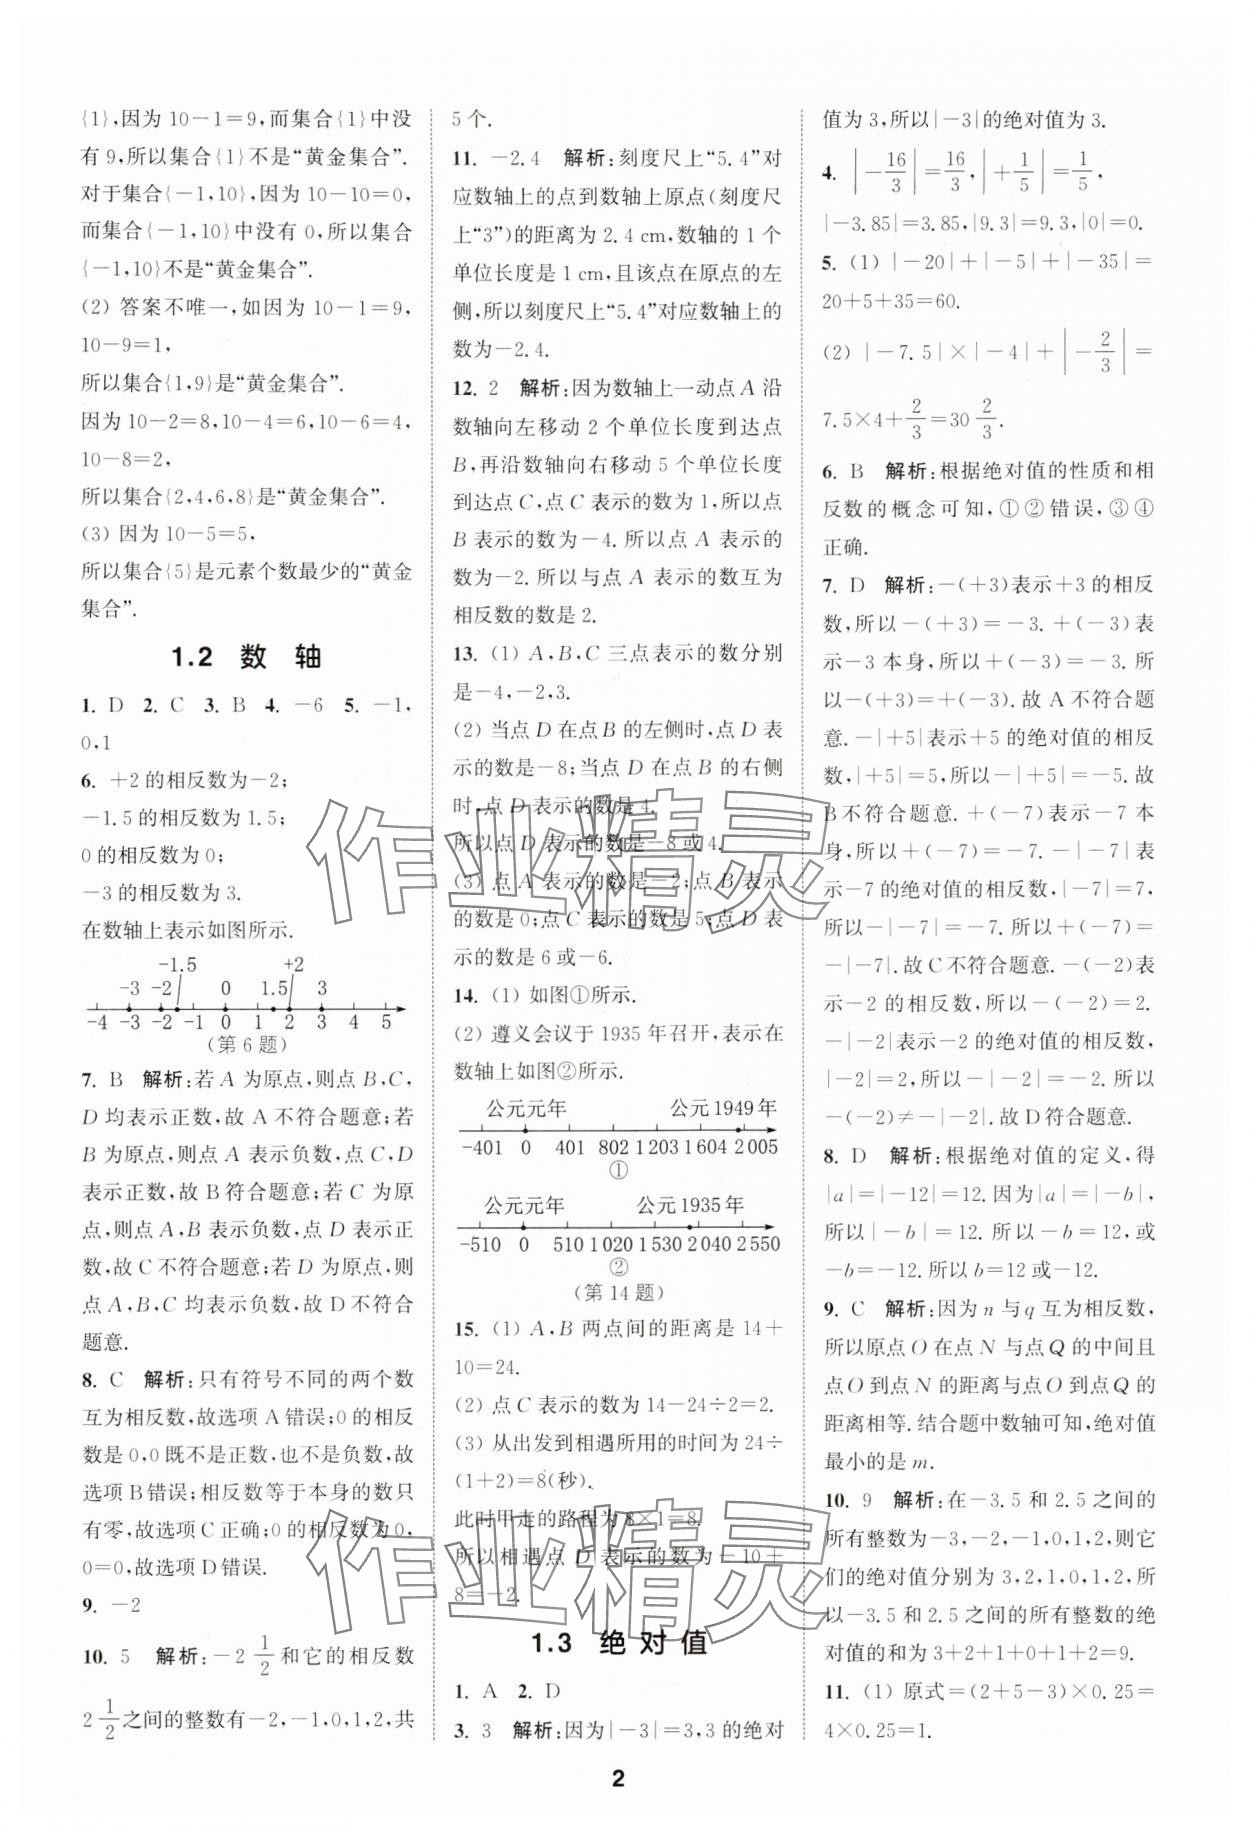 {1},因为10－1＝9,而集合{1}中没
有9,所以集合{1}不是“黄金集合”.
对于集合{－1,10},因为10－10＝0,
而集合{－1,10}中没有0,所以集合
{－1,10}不是“黄金集合”.
(2) 答案不唯一,如因为10－1＝9,
10－9＝1,
所以集合{1,9}是“黄金集合”.
因为10－2＝8,10－4＝6,10－6＝4,
10－8＝2,
所以集合{2,4,6,8}是“黄金集合”.
(3) 因为10－5＝5,
所以集合{5}是元素个数最少的“黄金
集合”.
1.2 数 轴
1. D 2. C 3. B 4. －6 5. －1,
0,1
6. ＋2的相反数为－2;
－1.5的相反数为1.5;
0的相反数为0;
－3的相反数为3.
在数轴上表示如图所示.
-1.5 +2
-3 -2 0 1.5 3
-4 -3 -2 -1 0 1 2 3 4 5
(第6题)
7. B 解析:若A为原点,则点B,C,
D均表示正数,故A不符合题意;若
B为原点,则点A表示负数,点C,D
表示正数,故B符合题意;若C为原
点,则点A,B表示负数,点D表示正
数,故C不符合题意;若D为原点,则
点A,B,C均表示负数,故D不符合
题意.
8. C 解析:只有符号不同的两个数
互为相反数,故选项A错误;0的相反
数是0,0既不是正数,也不是负数,故
选项B错误;相反数等于本身的数只
有零,故选项C正确;0的相反数为0,
0＝0,故选项D错误.
9. －2
10. 5 解析:－2 1/2 和它的相反数
2 1/2 之间的整数有－2,－1,0,1,2,共
5个.
11. －2.4 解析:刻度尺上“5.4”对
应数轴上的点到数轴上原点(刻度尺
上“3”)的距离为2.4 cm,数轴的1个
单位长度是1 cm,且该点在原点的左
侧,所以刻度尺上“5.4”对应数轴上的
数为－2.4.
12. 2 解析:因为数轴上一动点A沿
数轴向左移动2个单位长度到达点
B,再沿数轴向右移动5个单位长度
到达点C,点C表示的数为1,所以点
B表示的数为－4.所以点A表示的
数为－2.所以与点A表示的数互为
相反数的数是2.
13. (1) A,B,C三点表示的数分别
是－4,－2,3.
(2) 当点D在点B的左侧时,点D表
示的数是－8;当点D在点B的右侧
时,点D表示的数是4.
所以点D表示的数是－8或4.
(3) 点A表示的数是－2;点B表示
的数是0;点C表示的数是5;点D表
示的数是6或－6.
14. (1) 如图①所示.
(2) 遵义会议于1935年召开,表示在
数轴上如图②所示.
公元元年 公元1949年
-401 0 401 802 1 203 1 604 2 005
①
公元元年 公元1935年
-510 0 510 1 020 1 530 2 040 2 550
②
(第14题)
15. (1) A,B两点间的距离是14＋
10＝24.
(2) 点C表示的数为14－24÷2＝2.
(3) 从出发到相遇所用的时间为24÷
(1＋2)＝8(秒).
此时甲走的路程为8×1＝8.
所以相遇点D表示的数为－10＋
8＝－2.
1.3 绝对值
1. A 2. D
3. 3 解析:因为|－3|＝3,3的绝对
值为3,所以|－3|的绝对值为3.
4. |－16/3|＝16/3,|＋1/5|＝1/5,
|－3.85|＝3.85,|9.3|＝9.3,|0|＝0.
5. (1) |－20|＋|－5|＋|－35|＝
20＋5＋35＝60.
(2) |－7.5|×|－4|＋|－2/3|＝
7.5×4＋2/3＝30 2/3.
6. B 解析:根据绝对值的性质和相
反数的概念可知,①②错误,③④
正确.
7. D 解析:－(＋3)表示＋3的相反
数,所以－(＋3)＝－3.＋(－3)表
示－3本身,所以＋(－3)＝－3.所
以－(＋3)＝＋(－3).故A不符合题
意.－|＋5|表示＋5的绝对值的相反
数,|＋5|＝5,所以－|＋5|＝－5.故
B不符合题意.＋(－7)表示－7本
身,所以＋(－7)＝－7.－|－7|表
示－7的绝对值的相反数,|－7|＝7,
所以－|－7|＝－7.所以＋(－7)＝
－|－7|.故C不符合题意.－(－2)表
示－2的相反数,所以－(－2)＝2.
－|－2|表示－2的绝对值的相反数,
|－2|＝2,所以－|－2|＝－2.所以
－(－2)≠－|－2|.故D符合题意.
8. D 解析:根据绝对值的定义,得
|a|＝|－12|＝12.因为|a|＝|－b|,
所以|－b|＝12.所以－b＝12,或
－b＝－12.所以b＝12或－12.
9. C 解析:因为n与q互为相反数,
所以原点O在点N与点Q的中间且
点O到点N的距离与点O到点Q的
距离相等.结合题中数轴可知,绝对值
最小的是m.
10. 9 解析:在－3.5和2.5之间的
所有整数为－3,－2,－1,0,1,2,则它
们的绝对值分别为3,2,1,0,1,2,所
以－3.5和2.5之间的所有整数的绝
对值的和为3＋2＋1＋0＋1＋2＝9.
11. (1) 原式＝(2＋5－3)×0.25＝
4×0.25＝1.
2
作业精灵
作业精灵